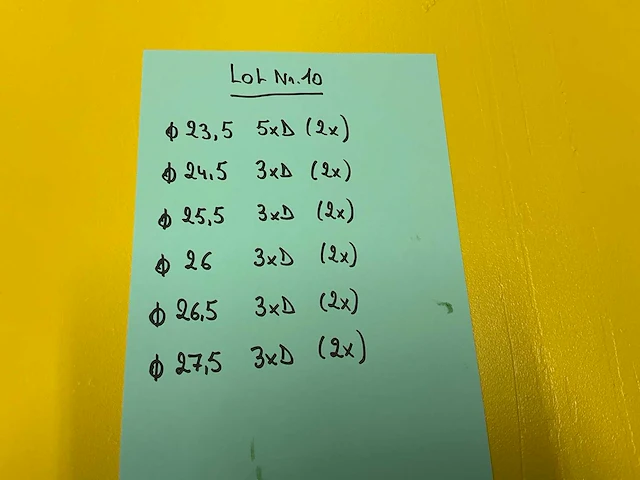 Lot Nr. 10
ϕ 23,5 5xD (2x)
ϕ 24,5 3xD (2x)
ϕ 25,5 3xD (2x)
ϕ 26 3xD (2x)
ϕ 26,5 3xD (2x)
ϕ 27,5 3xD (2x)